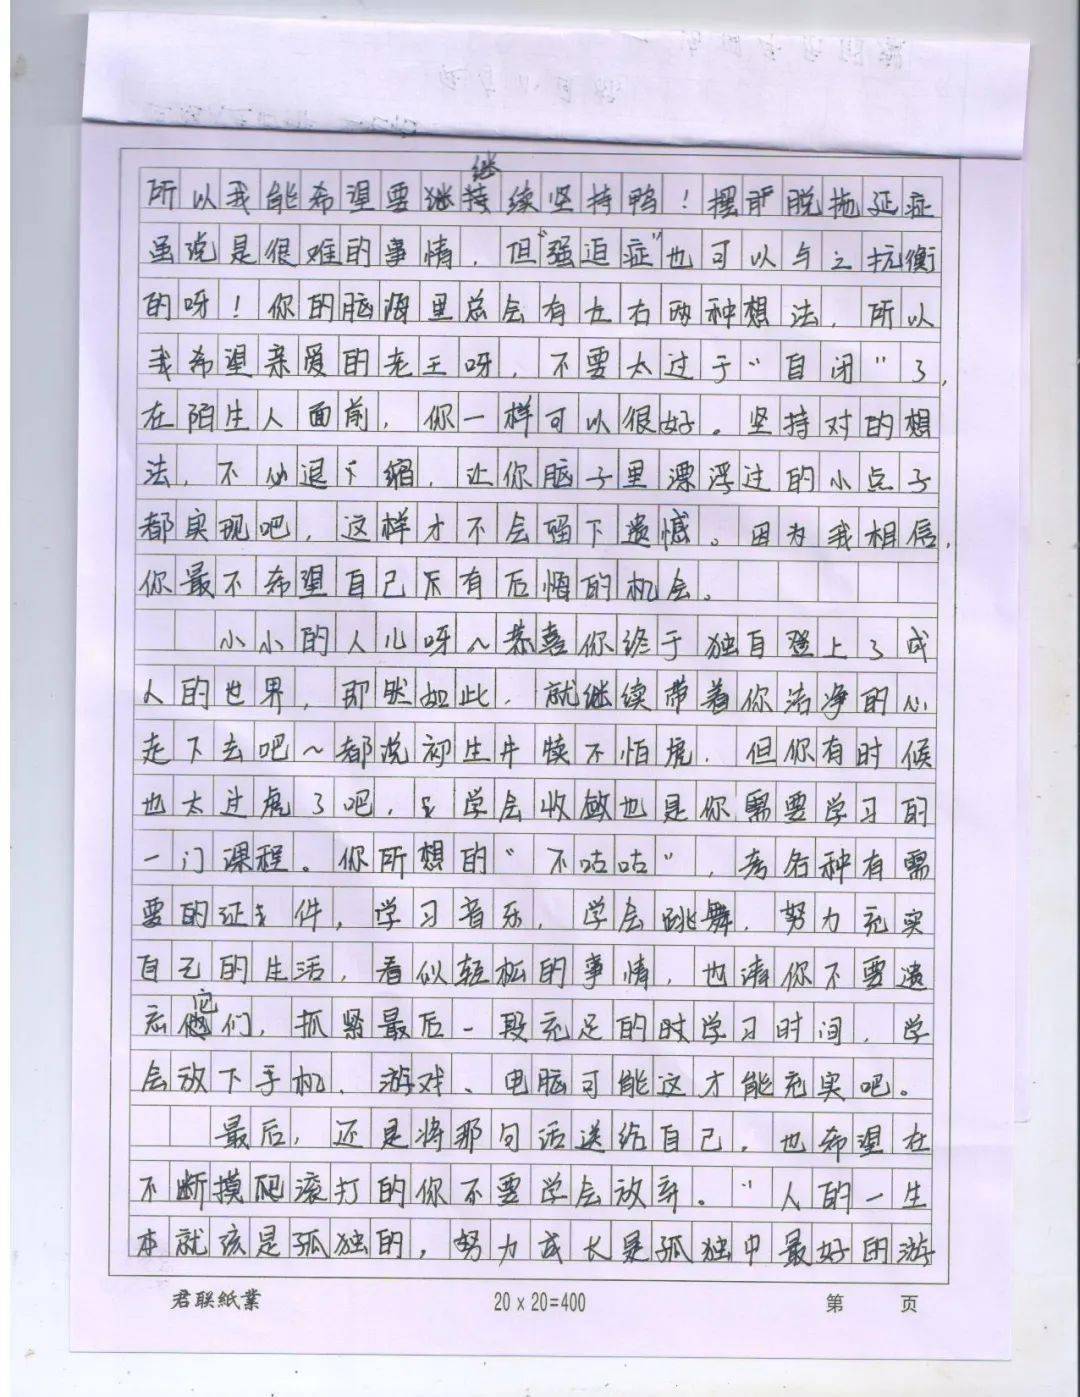 所以我能希望要继续坚持鸭！摆脱拖延症
虽说是很难的事情，但“强迫症”也可以与之抗衡
的呀！你的脑海里总会有左右两种想法，所以
我希望亲爱的老王呀，不要太过于“自闭”了，
在陌生人面前，你一样可以很好。坚持对的想
法，不必退下缩，让你脑子里漂浮过的小点子
都实现吧，这样才不会留下遗憾。因为我相信，
你最不希望自己后有后悔的机会。
小小的人儿呀～恭喜你终于独自登上了成
人的世界，即然如此，就继续带着你洁净的心
走下去吧～都说初生牛犊不怕虎，但你有时候
也太过虎了吧，学会收敛也是你需要学习的
一门课程。你所想的“不咕咕”，考各种有需
要的证件，学习音乐，学会跳舞，努力充实
自己的生活，看似轻松的事情，也请你不要遗
忘它们，抓紧最后一段充足的时学习时间，学
会放下手机、游戏、电脑可能这才能充实吧。
最后，还是将那句话送给自己，也希望在
不断摸爬滚打的你不要学会放弃。“人的一生
本就该是孤独的，努力成长是孤独中最好的游
君联紙業
20×20=400
第 页